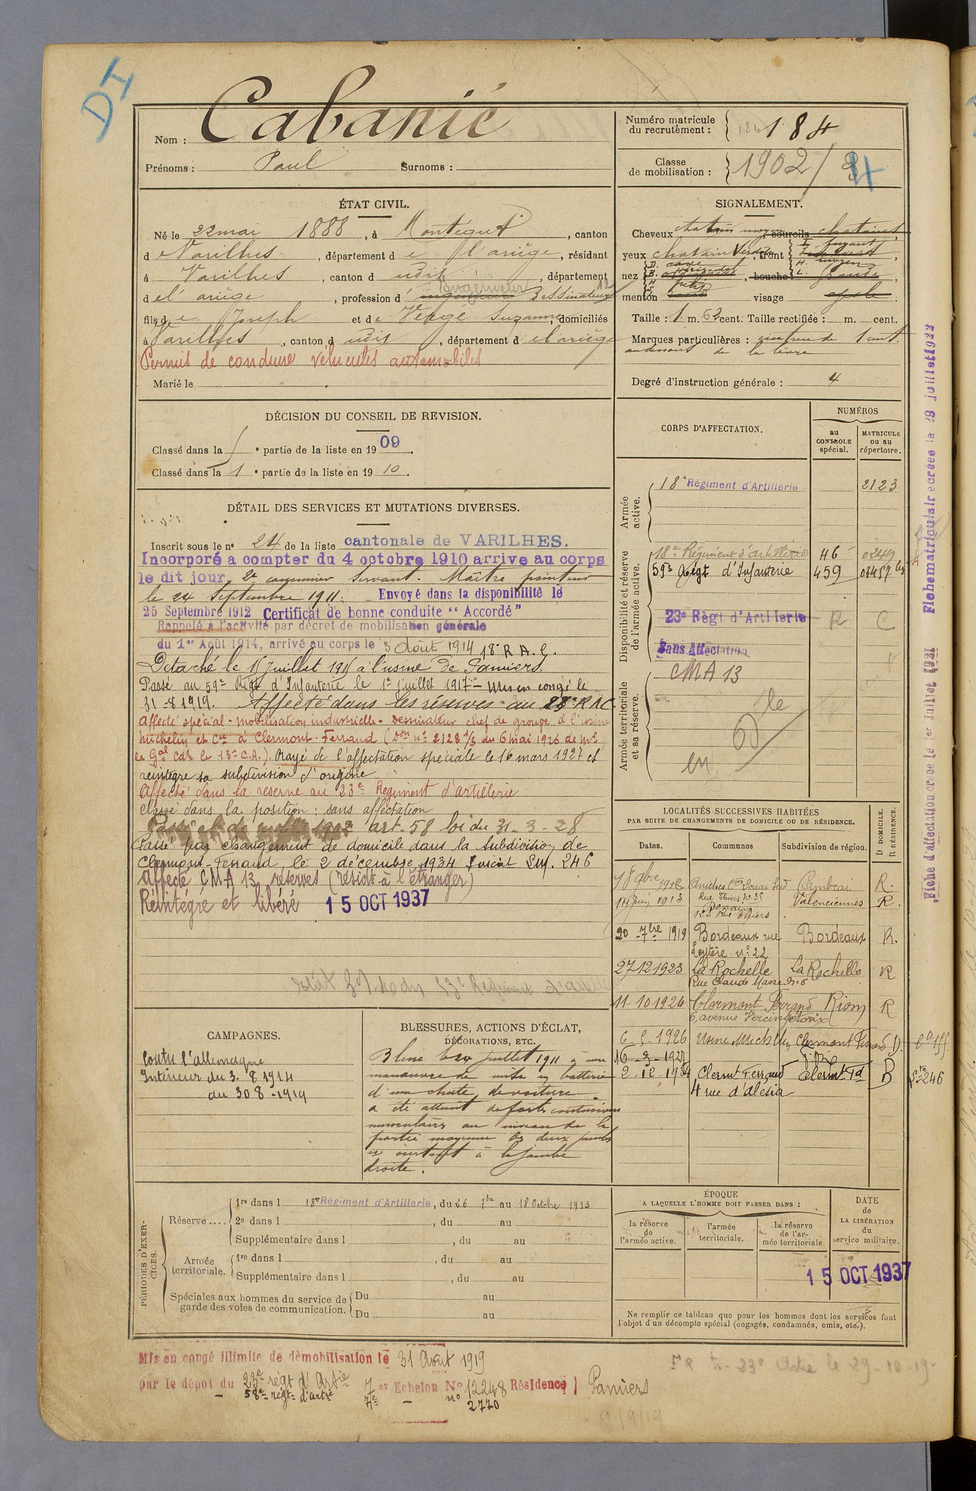 DI
Nom : Cabanié
Prénoms : Paul Surnoms :
Numéro matricule du recrutement : 184
Classe de mobilisation : 1902/
ÉTAT CIVIL.
Né le 22 mai 1888, à Montégut, canton
d e Varilhes, département d e l'ariège, résidant
à Varilhes, canton d udit, département
d e l'ariège, profession d' Ingénieur Dessinateur
fils d e Joseph et de Vergé Suzanne, domiciliés
à Varilhes, canton d udit, département d e l'ariège
Permis de conduire véhicules automobiles
Marié le
SIGNALEMENT.
Cheveux chatain moyen, sourcils chatains
yeux chatain verdâ, front
nez, bouche
menton visage ovale
Taille : 1 m. 62 cent. Taille rectifiée : m. cent.
Marques particulières : de 1 cent.
au dessous de la lèvre
Degré d'instruction générale : 4
DÉCISION DU CONSEIL DE RÉVISION.
Classé dans la 5e partie de la liste en 1909.
Classé dans la 1e partie de la liste en 1910.
CORPS D'AFFECTATION.
NUMÉROS
au CONTROLE spécial.
MATRICULE ou au répertoire.
Armée active.
18e Régiment d'Artillerie 2123
Disponibilité et réserve de l'armée active.
18e Régiment d'artillerie 46 0249
59e Régt d'Infanterie 459
23e Régt d'Artillerie R C
Sans Affectation
Armée territoriale et sa réserve.
CMA 13
DÉTAIL DES SERVICES ET MUTATIONS DIVERSES.
Inscrit sous le no 24 de la liste cantonale de VARILHES.
Incorporé à compter du 4 octobre 1910 arrivé au corps
le dit jour, 2e canonnier servant. Maître pointeur
le 24 Septembre 1911. Envoyé dans la disponibilité le
25 Septembre 1912 Certificat de bonne conduite "Accordé"
Rappelé à l'activité par décret de mobilisation générale
du 1er Août 1914, arrivé au corps le 3 Août 1914 18e R.A.C.
Détaché le 15 Juillet 1915 à l'usine de Pamiers.
Passé au 59e Régt d'Infanterie le 1er juillet 1917 - Mis en congé le
31-8-1919. Affecté dans les réserves au 23e R.A.C
Affecté spécial - mobilisation industrielle - Dessinateur chef de groupe à l'usine
Michelin et Cie à Clermont-Ferrand (Don no 2128 4/5 du 6 mai 1926 de Mr
le Gal Cdt le 13e C.A.). Rayé de l'affectation spéciale le 16 mars 1927 et
réintègre sa subdivision d'origine
Affecté dans la réserve au 23e Régiment d'artillerie
Classé dans la position : sans affectation
art. 58 loi du 31-3-28
Passé par changement de domicile dans la subdivision de
Clermont-Ferrand, le 2 décembre 1934
Affecté CMA 13 réserves (résidt à l'étranger)
Réintégré et libéré 15 OCT 1937
LOCALITÉS SUCCESSIVES HABITÉES
PAR SUITE DE CHANGEMENTS DE DOMICILE OU DE RÉSIDENCE.
Dates. Communes Subdivision de région. D DOMICILE. R RÉSIDENCE.
1912 Aniches Cambrai R.
1913 Rue Thiers no 35 Valenciennes R.
20 7bre 1919 Bordeaux rue Bordeaux R.
no 22
27-12-1923 La Rochelle La Rochelle R
Rue Claude Masse no 6
11-10-1926 Clermont Ferrand Riom R
6 avenue Vercingétorix
1926 Usine Michelin Clermont Ferrand D.
16-3-1927
2-12-1934 Clermt Ferrand Clermt Fd R
4 rue d'Alésia
CAMPAGNES.
Contre l'allemagne
Intérieur du 3.8.1914
au 30 8-1919
BLESSURES, ACTIONS D'ÉCLAT,
DÉCORATIONS, ETC.
Blessé le 24 juillet 1911 à une
manœuvre de mise en batterie
d'une chute de voiture
a été atteint de fortes contusions
musculaires au niveau de la
partie moyenne des deux
et surtout à la jambe
droite.
PÉRIODES D'EXERCICES.
Réserve.... 1re dans l 18e Régiment d'Artillerie, du 26 7bre au 18 Octobre 1913
2e dans l , du au
Supplémentaire dans l , du au
Armée territoriale. 1re dans l , du au
Supplémentaire dans l , du au
Spéciales aux hommes du service de garde des voies de communication. Du au
Du au
ÉPOQUE
A LAQUELLE L'HOMME DOIT PASSER DANS :
la réserve de l'armée active.
l'armée territoriale.
la réserve de l'armée territoriale.
DATE DE LA LIBÉRATION du service militaire.
15 OCT 1937
Ne remplir ce tableau que pour les hommes dont les services font
l'objet d'un décompte spécial (engagés, condamnés, omis, etc.).
Mis en congé illimité de démobilisation le 31 Août 1919
par le dépôt du 23e régt d'Artie 7e Echelon No 12248 Résidence Pamiers
58e régt d'artie 7e no 2770
Fiche d'affectation créée le 1er Juillet 1921
Fiche matriculaire créée le 29 juillet 1922